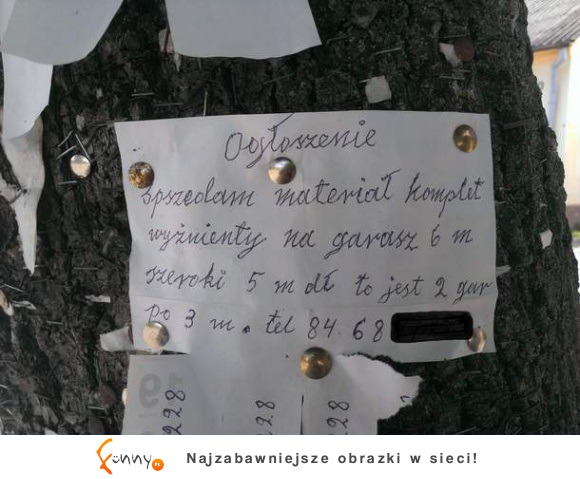 Oogłoszenie
spszedam materiał komplet
wyżnienty na garasz 6 m
szeroki 5 m dł to jest 2 gar
po 3 m. tel 84 68
228
228
228
funny.pl
Najzabawniejsze obrazki w sieci!